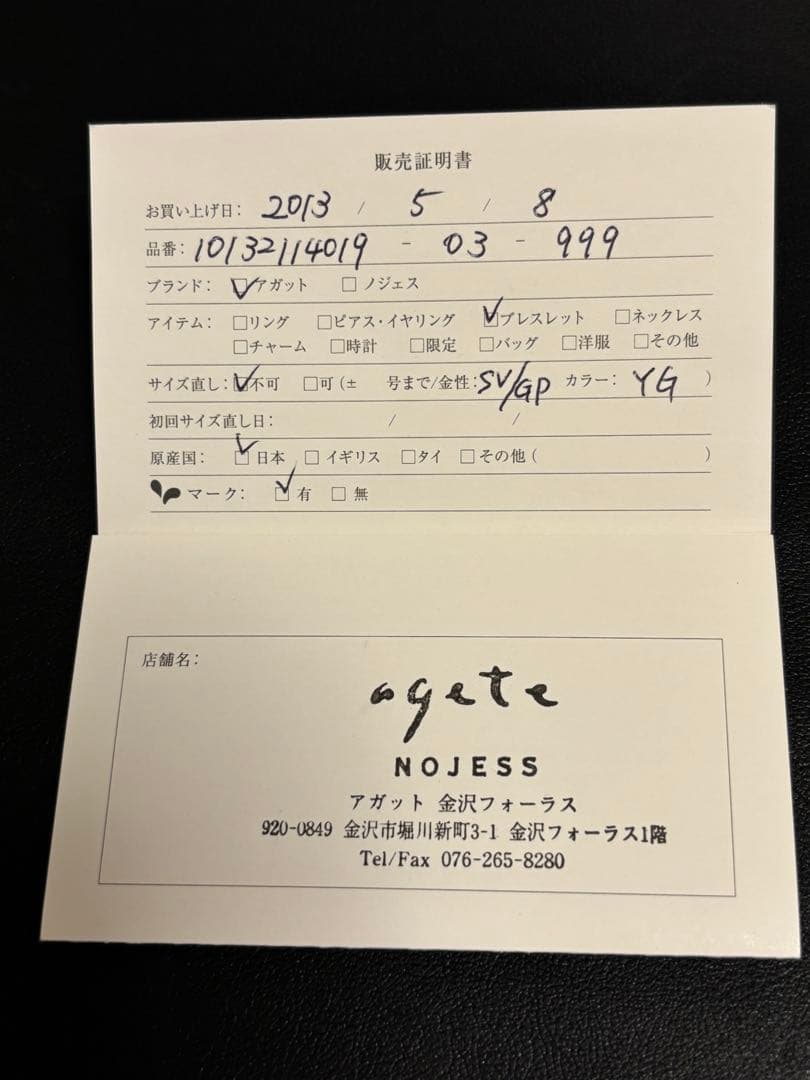 販売証明書
お買い上げ日: 2013 / 5 / 8
品番: 10132114019 - 03 - 999
ブランド: ☑アガット □ノジェス
アイテム: □リング □ピアス・イヤリング ☑ブレスレット □ネックレス
□チャーム □時計 □限定 □バッグ □洋服 □その他
サイズ直し: ☑不可 □可(± 号まで/金性:SV/GP カラー: YG )
初回サイズ直し日: / /
原産国: ☑日本 □イギリス □タイ □その他( )
マーク: ☑有 □無
店舗名:
agete
NOJESS
アガット 金沢フォーラス
920-0849 金沢市堀川新町3-1 金沢フォーラス1階
Tel/Fax 076-265-8280